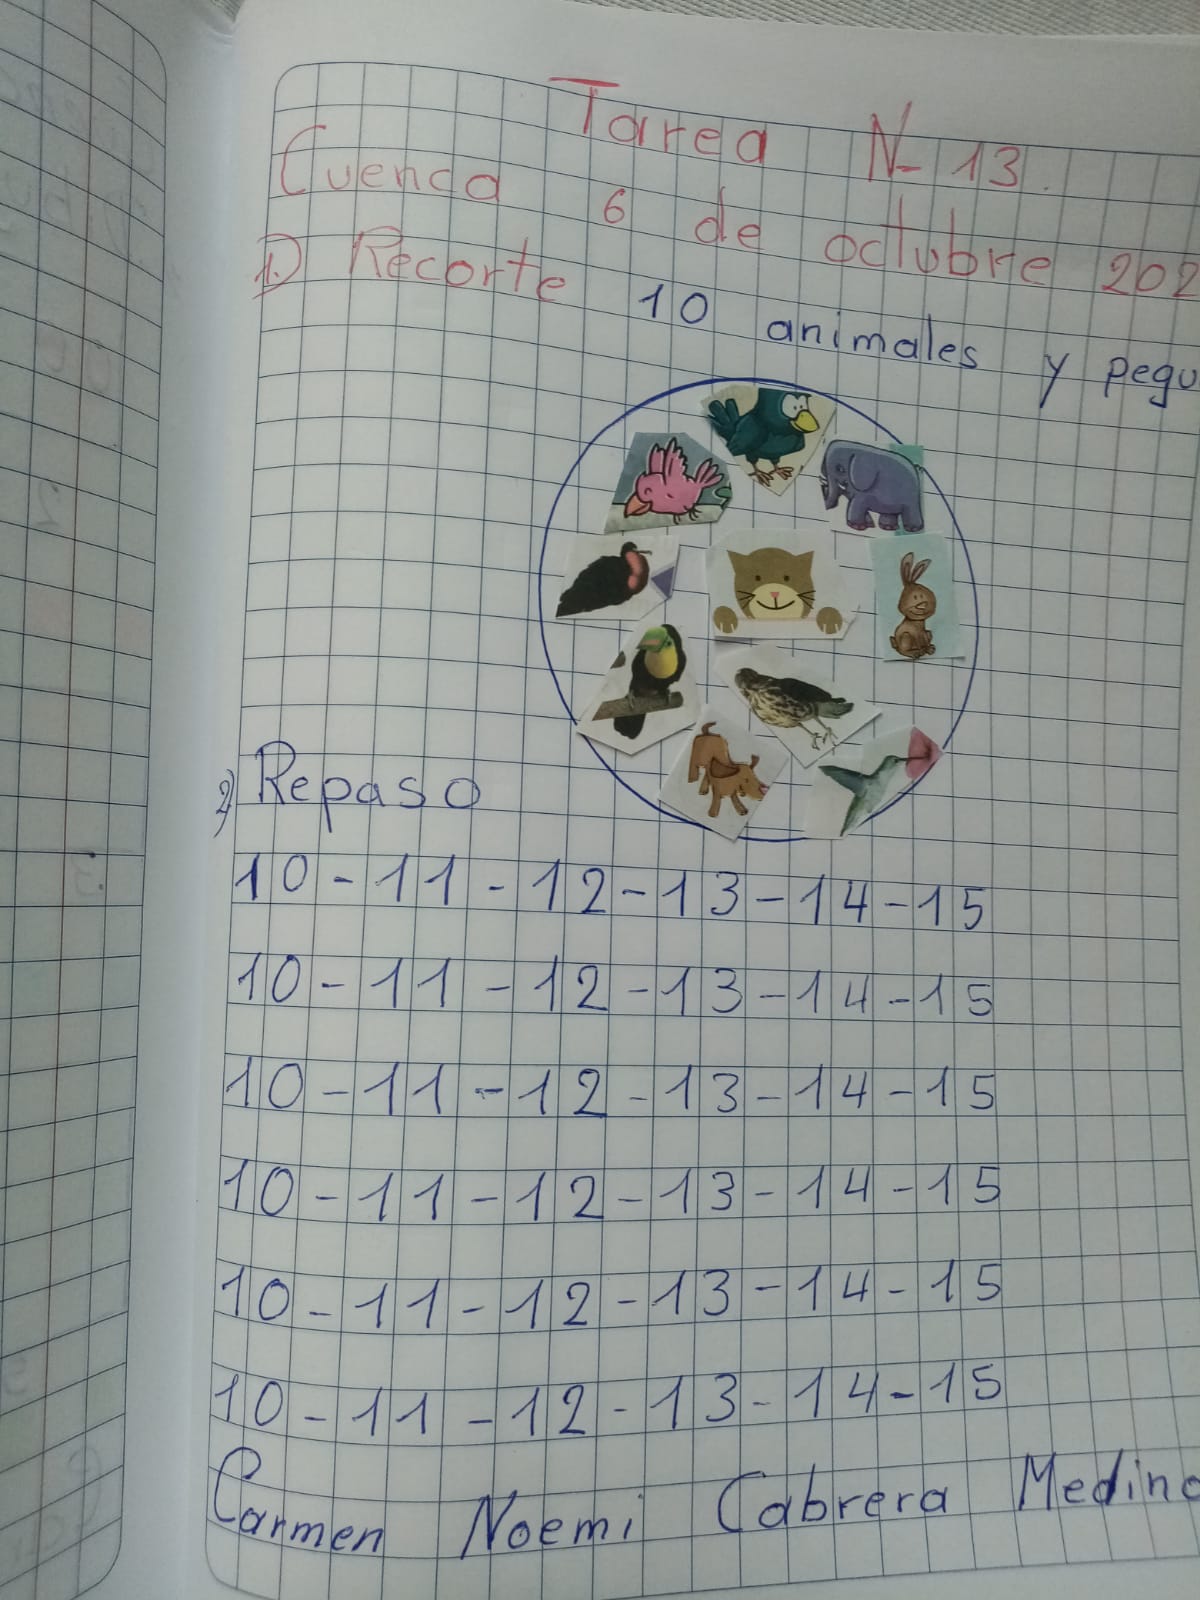 Tarea N- 13.
Cuenca 6 de octubre 202
1.) Recorte 10 animales y pegu
2) Repaso
10 - 11 - 12 - 13 - 14 - 15
10 - 11 - 12 - 13 - 14 - 15
10 - 11 - 12 - 13 - 14 - 15
10 - 11 - 12 - 13 - 14 - 15
10 - 11 - 12 - 13 - 14 - 15
10 - 11 - 12 - 13 - 14 - 15
Carmen Noemi Cabrera Medina